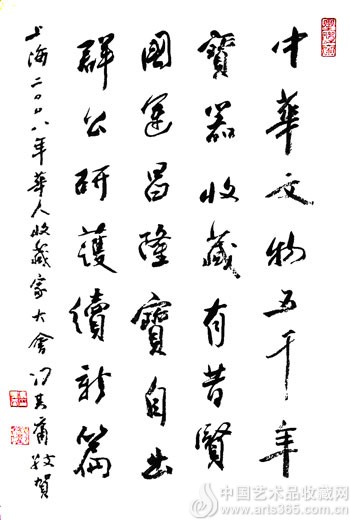 中華文物五千年
寶器收藏有昔賢
國運昌隆寶自出
群公研護續新篇
上海二〇〇八年華人收藏家大會馮其庸敬賀
中国艺术品收藏网
www.arts365.com.cn